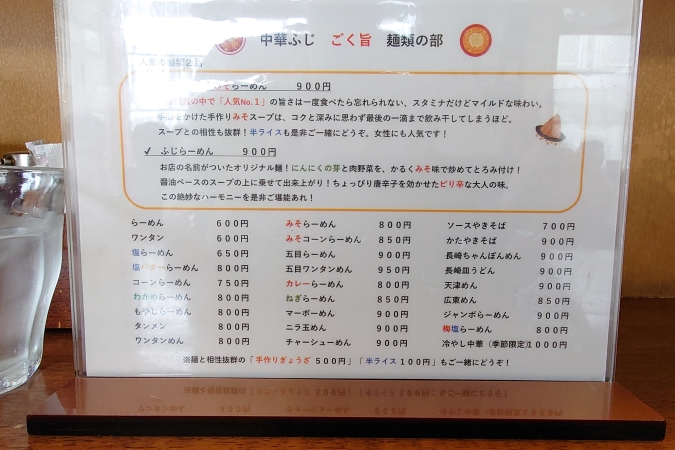 中華ふじ ごく旨 麺類の部
人気の麺類2品
みそらーめん 900円
の中で「人気No.1」の旨さは一度食べたら忘れられない、スタミナだけどマイルドな味わい。
手間をかけた手作りみそスープは、コクと深みに思わず最後の一滴まで飲み干してしまうほど。
スープとの相性も抜群!半ライスも是非ご一緒にどうぞ。女性にも人気です!
✓ ふじらーめん 900円
お店の名前がついたオリジナル麺!にんにくの芽と肉野菜を、かるくみそ味で炒めてとろみ付け!
醤油ベースのスープの上に乗せて出来上がり!ちょっぴり唐辛子を効かせたピリ辛な大人の味。
この絶妙なハーモニーを是非ご堪能あれ!
らーめん 600円 みそらーめん 800円 ソースやきそば 700円
ワンタン 600円 みそコーンらーめん 850円 かたやきそば 900円
塩らーめん 650円 五目らーめん 900円 長崎ちゃんぽんめん 900円
塩バターらーめん 800円 五目ワンタンめん 950円 長崎皿うどん 900円
コーンらーめん 750円 カレーらーめん 800円 天津めん 900円
わかめらーめん 800円 ねぎらーめん 850円 広東めん 850円
もやしらーめん 800円 マーボーめん 900円 ジャンボらーめん 900円
タンメン 800円 ニラ玉めん 900円 梅塩らーめん 800円
ワンタンめん 800円 チャーシューめん 900円 冷やし中華(季節限定)1000円
※麺と相性抜群の「手作りぎょうざ 500円」「半ライス100円」もご一緒にどうぞ!